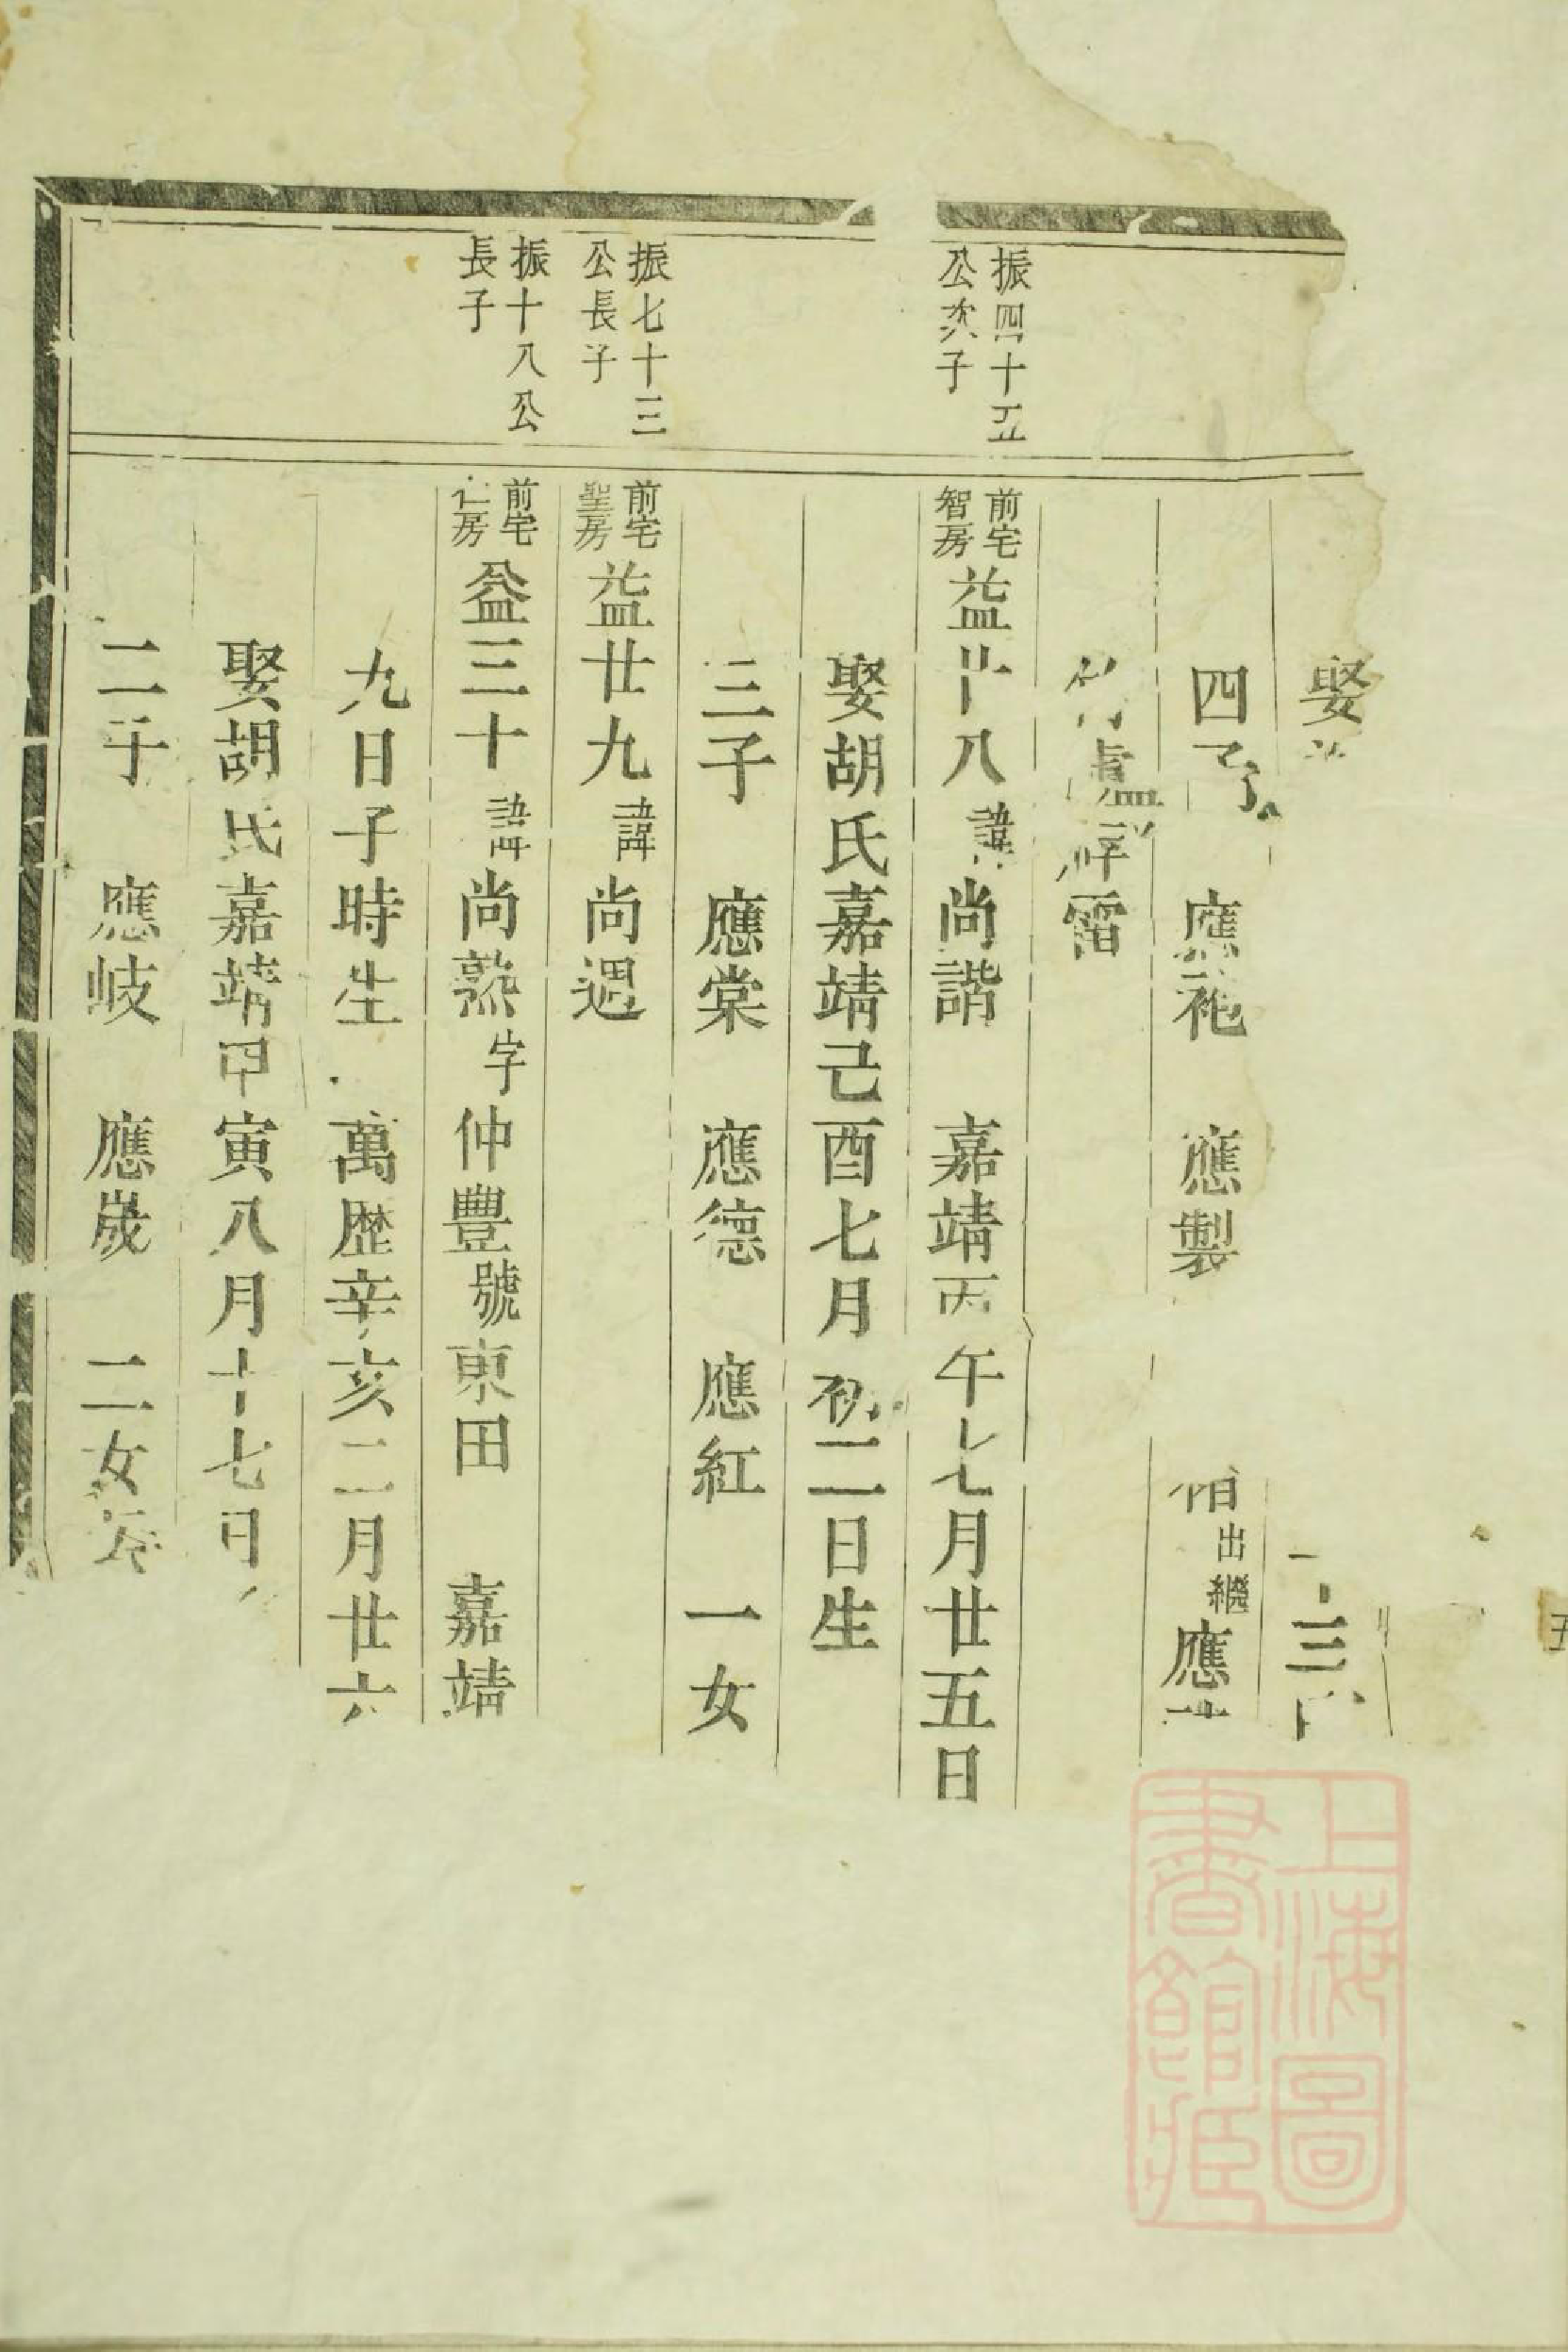 娶
三
四子 應袍 應製 出繼 應
振四十五
公次子
前宅
智房
益廿八諱尚諧 嘉靖丙午七月廿五日
娶胡氏嘉靖己酉七月初二日生
三子 應棠 應德 應紅 一女
振七十三
公長子
前宅
聖房
益廿九諱尚遇
振十八公
長子
前宅
仁房
益三十諱尚熟字仲豐號東田 嘉靖
九日子時生 萬歷辛亥二月廿六
娶胡氏嘉靖甲寅八月十七日
二子 應岐 應嵗 二女
上海圖
書館藏